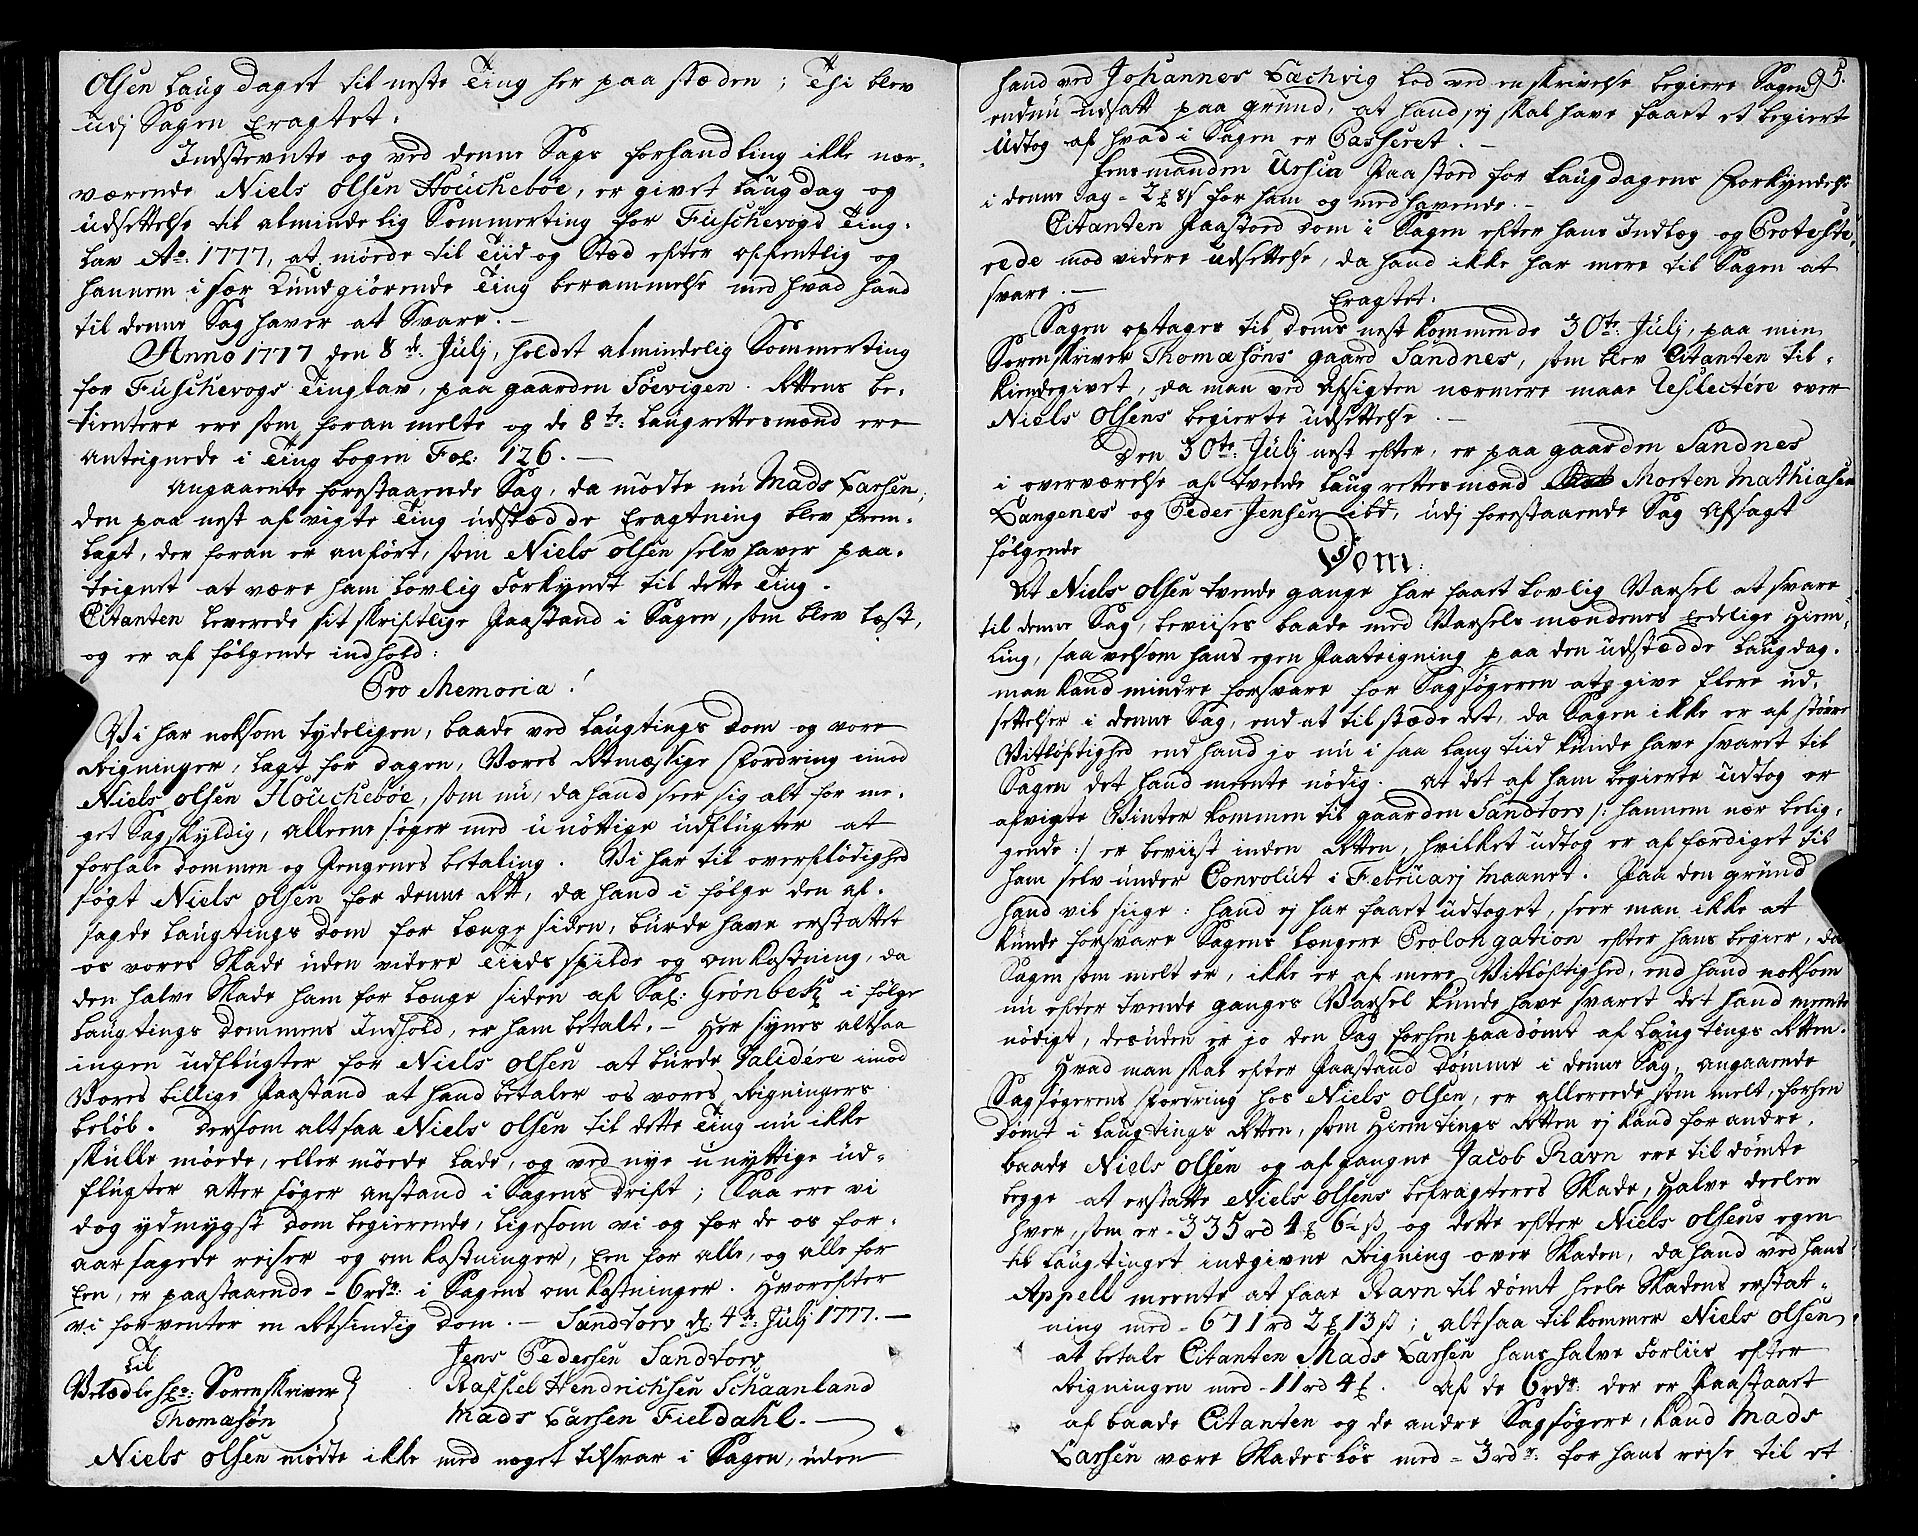 Olsen Laugdaget til neste Ting her paa stæden; Thi blev
udj Sagen Eragtet.
Indstevnte og ved denne Sags forhandling ikke nær-
værende Niels Olsen Houchebøe, er givet Laugdag og
udsettelse til almindelig Sommerting for Fuschevogs Ting-
lav Ao. 1777, at møde til Tiid og Stæd efter offentlig og
hannem i sær kundgiørende Ting berammelse med hvad hand
til denne Sag haver at Svare. -
Anno 1777 den 8de. Julj, holdet almindelig Sommerting
for Fuschevogs Tinglav, paa gaarden Søevigen. Rettens be-
tientere ere som foran melte og de 8te: Laugrettesmænd ere
anteignede i Ting bogen Fol: 126. -
Angaaende forestaaende Sag, da mødte nu Mads Larsen,
den paa nest afvigte Ting udstædde Eragtning blev frem-
lagt, der foran er anført, som Niels Olsen selv haver paa-
teignet at være ham lovlig Forkyndt til dette Ting.
Citanten leverede sit skriftlige Paastand i Sagen, som blev læst,
og er af følgende indhold:
Pro Memoria!
Vi har noksom tydeligen, baade ved Laugtings Dom og vore
Regninger, lagt for dagen, Vores Retmæssige Fordring imod
Niels Olsen Houchebøe, som nu, da hand seer sig alt for me-
get Sagskyldig, alleene søger med unøttige udflugter at
forhale dommen og Pengenes betaling. Vi har til overflødighed
søgt Niels Olsen for denne Ret, da hand i følge den af-
sagde Laugtings Dom for længe siden, burde have erstattet
os vores Skade uden videre Tiids spilde og omkostning, da
den halve Skade ham for længe siden af Sal: Grønbek i følge
Laugtings dommens Indhold, er ham betalt. - Her synes altsaa
ingen udflugter for Niels Olsen at burde Validére imod
Vores billige Paastand at hand betaler os vores Regningers
beløb. Dersom altsaa Niels Olsen til dette Ting nu ikke
skulle møde, eller møde lade, og ved nye unyttige ud-
flugter atter søger anstand i Sagens drift; Saa ere vi
dog ydmygst dom begierende, ligesom vi og for de os for-
aarsagede reiser og omkostninger, Een for alle, og alle for
Een, er paastaaende - 6rdr: i Sagens omkostninger. Hvorefter
vi forventer en Retsindig dom. - Sandtorv d: 4de: Julj 1777. -
Til
Jens Pedersen Sandtorv
Velædle Hr: Sorenskriver
Raffiel Hendrichsen Schaanland
Thomasøn
Mads Larsen Fieldahl. -
Niels Olsen mødte ikke med noget tilsvar i Sagen, uden
95.
hand ved Johannes Lachvig lod ved en skrivelse begiere Sagen
endnu udsatt paa grund, at hand ej skal have faaet et begiert
Udtog af hvad i Sagen er Passeret. -
Lensmanden Ursin Paastod for Laugdagens Forkyndelse
i denne Sag - 2 8 for ham og medhavende. -
Citanten Paastod Dom i Sagen efter hans Indlæg og Proteste-
rede mod videre Udsettelse, da hand ikke har mere til Sagen at
svare. -
Eragtet:
Sagen optages til doms nest kommende 30te: Julj, paa min
Sorenskriver Thomæsøns gaard Sandnes, som blev Citanten til-
kiendegivet, da man ved Afsigten nærmere maae Reflectére over
Niels Olsens begierte udsettelse. -
Den 30te: Julj nest efter, er paa gaarden Sandnes
i overværelse af tvende Laugrettesmænd Morten Mathiasen
Langenes og Peder Jensen ibd, udj forestaaende Sag Afsagt
følgende
Dom:
At Niels Olsen tvende gange har faaet Lovlig Varsel at svare
til denne Sag, beviises baade med Varsels mændenes Eedelige Hiem-
ling, saavelsom hans egen Paateigning paa den udstædde Laugdag.
man kand mindre forsvare for Sagsøgeren at give flere ud-
settelser i denne Sag, end at tilstæde det, da Sagen ikke er af større
Vitløftighed end hand jo nu i saa lang tiid kunde have svaret til
Sagen det hand meente nödig. At det af ham begierte udtog er
afvigte Vinter kommen til gaarden Sandtorv /: hannem nær belig-
gende :/ er beviist inden Retten, hvilket udtog er afferdiget til
ham selv under Convolut i Februarj Maanet. Paa den grund
hand vil siige: hand ej har faaet udtoget, seer man ikke at
kunde forsvare Sagens længere Prolongation efter hans begier, da
Sagen som melt er, ikke er af mere Vitløftighed, end hand noksom
nu efter tvende ganges Varsel kunde have svaret det hand meente
nödigt, desuden er jo den Sag forhen paadømt af Laugtings Retten.
Hvad man skal efter Paastand dømme i denne Sag, angaaende
Sagsøgerens Fordring hos Niels Olsen, er allereede som melt, forhen
dømt i Laugtings Retten, som Hiemtings Retten ej kand forandre,
baade Niels Olsen og afgangne Jacob Ravn ere tildømte
begge at erstatte Niels Olsens befragteres Skade, Halve deelen
hver, som er - 335rd 4 6½ß og dette efter Niels Olsens egen
til Laugtinget indgivne Regning over Skaden, da hand ved hans
Appell meente at faae Ravn til dømt heele Skadens erstat-
ning med - 671rd 2 13ß; altsaa tilkommer Niels Olsen
at betale Citanten Mads Larsen hans halve Forliis efter
Regningen med - 11rd 4. Af de 6rdr: der er Paastaaet
af baade Citanten og de andre Sagsøgere, kand Mads
Larsen være Skadesløs med - 3rdr: for hans reise til et